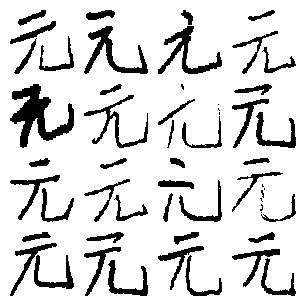 元元元元
元元元元
元元元元
元元元元